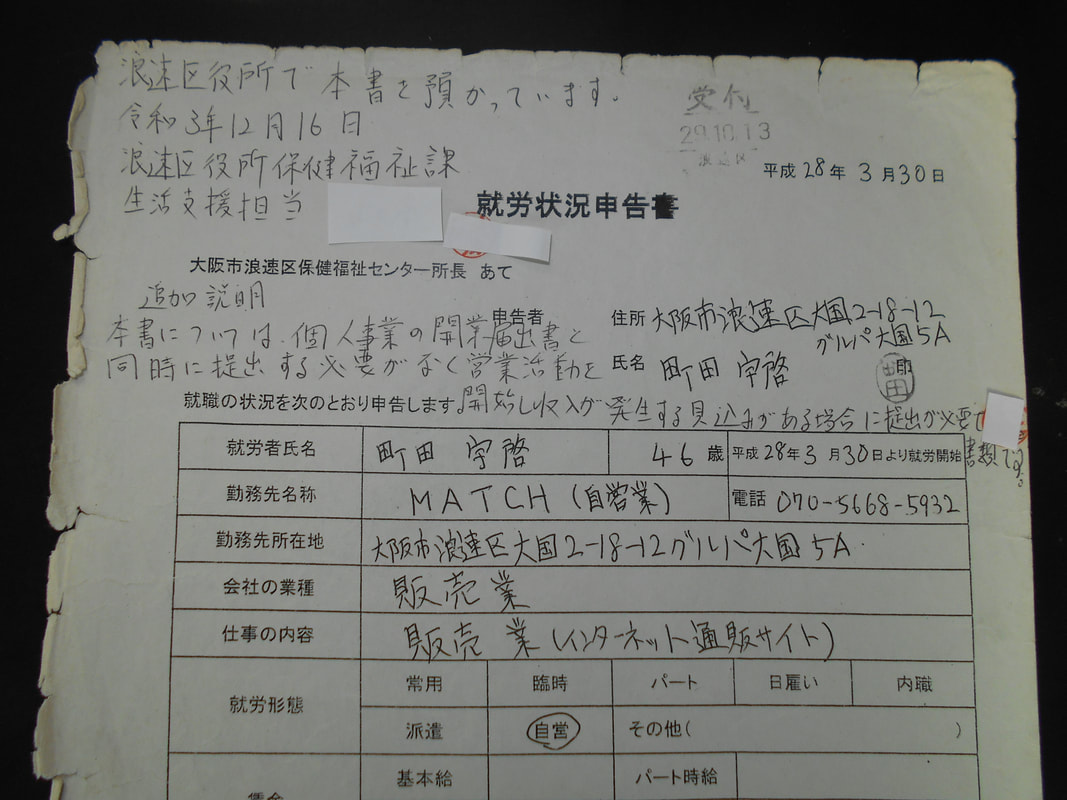 浪速区役所で本書を預かっています。
令和3年12月16日
浪速区役所保健福祉課
生活支援担当
受付
29.10.13
浪速区
平成28年3月30日
就労状況申告書
大阪市浪速区保健福祉センター所長 あて
追加説明
本書については、個人事業の開業届出書と
同時に提出する必要がなく営業活動を
開始し収入が発生する見込みがある場合に提出が必要な
書類です。
申告者
住所 大阪市浪速区大国2-18-12
グルパ大国5A
氏名 町田宇啓
町田
就職の状況を次のとおり申告します。
就労者氏名 町田 宇啓 46歳 平成28年3月30日より就労開始
勤務先名称 MATCH(自営業) 電話 070-5668-5932
勤務先所在地 大阪市浪速区大国2-18-12グルパ大国5A
会社の業種 販売業
仕事の内容 販売業(インターネット通販サイト)
就労形態 常用 臨時 パート 日雇い 内職
派遣 自営 その他( )
基本給 パート時給
賃金